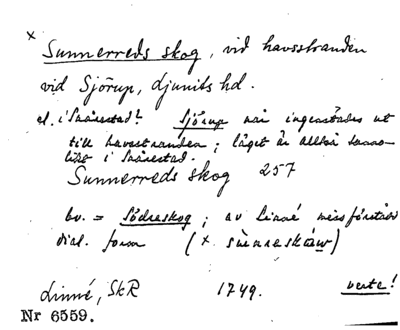 x
Sunnerreds skog, vid havsstranden
vid Sjörup, Ljunits hd.
el. i Snårestad? Sjörup når ingenstädes ut
till havsstranden; läget är alltså sanno-
likt i Snårestad.
Sunnerreds skog 257
bv. = Södraskog; av Linné missförstådd
dial. form (x
Linné, SkR 1749. verte!
Nr 6559.